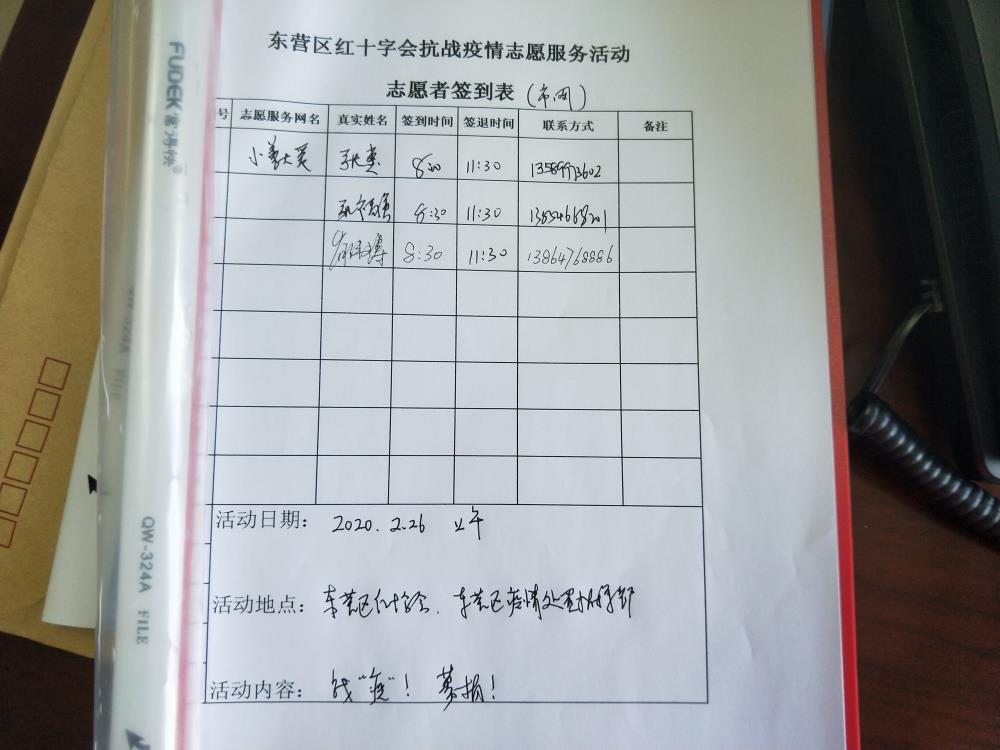 FUDEK富得快®
东营区红十字会抗战疫情志愿服务活动
志愿者签到表
号 志愿服务网名 真实姓名 签到时间 签退时间 联系方式 备注
8:30 11:30 13589973602
8:30 11:30
8:30 11:30 13864768886
活动日期： 2020.2.26 上午
活动地点： 东营区红十字会、东营区疫情处置指挥部
活动内容： 战“疫”！ 募捐！
QW-324A FILE